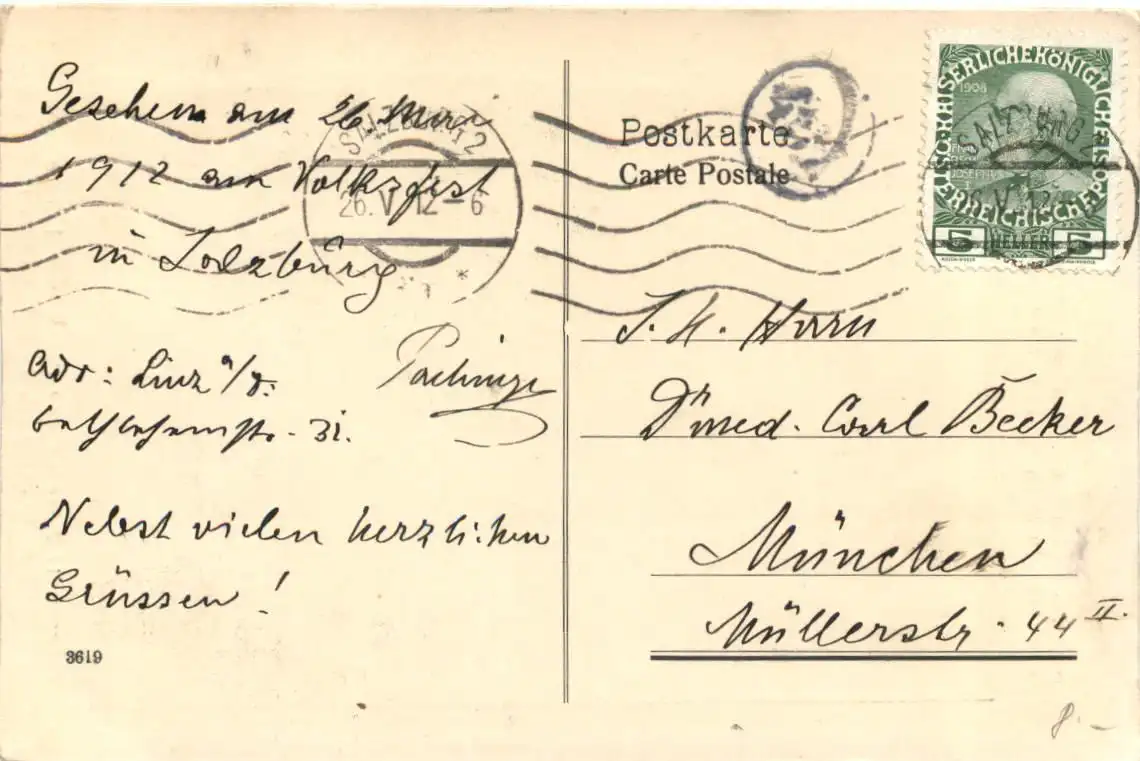 Gesehen am 26. Mai
1912 am Volksfest
in Salzburg
Adr: Linz a/D.
Bethlehemstr. 31.
Nebst vielen herzlichen
Grüssen!
3619
SALZBURG 12
26. V 12 - 6
*
Postkarte
Carte Postale
KAISERLICHE KÖNIGLICHE ÖSTERREICHISCHE POST
1908
5 HELLER 5
SALZBURG
S. H. Herrn
Dr med. Carl Becker
München
Müllerstr. 44 II.
8.-